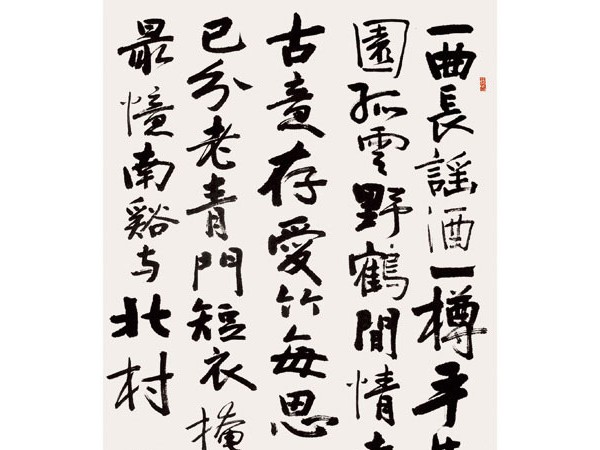 一曲長謠酒一樽平生
園孤雲野鶴閒情
古意存愛竹每思
已分老青門短衣掩
最憶南谿与北村